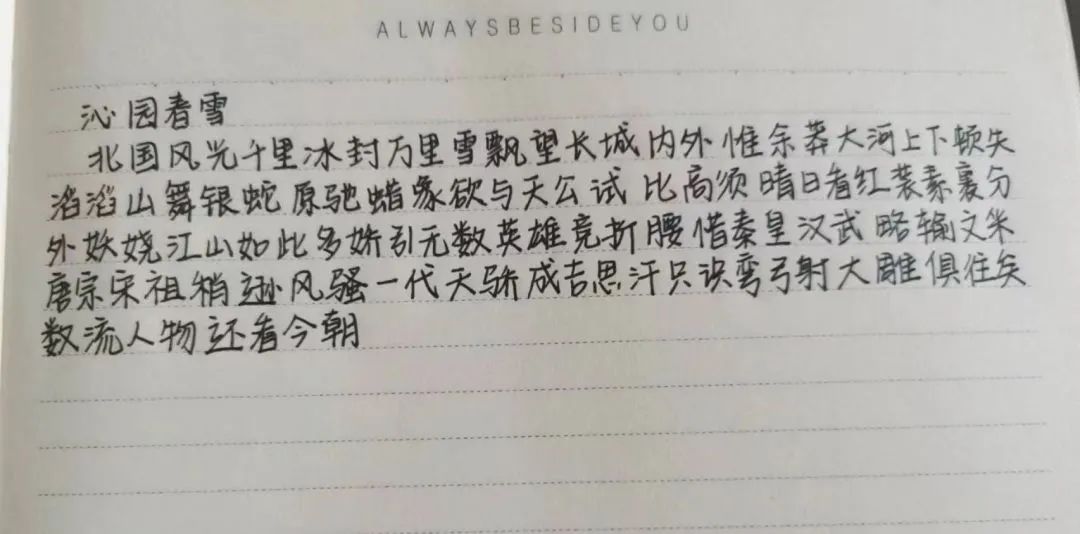 ALWAYSBESIDEYOU
沁园春雪
北国风光千里冰封万里雪飘望长城内外惟余莽大河上下顿失
滔滔山舞银蛇原驰蜡象欲与天公试比高须晴日看红装素裹分
外妖娆江山如此多娇引无数英雄竞折腰惜秦皇汉武略输文米
唐宗宋祖稍逊风骚一代天骄成吉思汗只识弯弓射大雕俱往矣
数流人物还看今朝